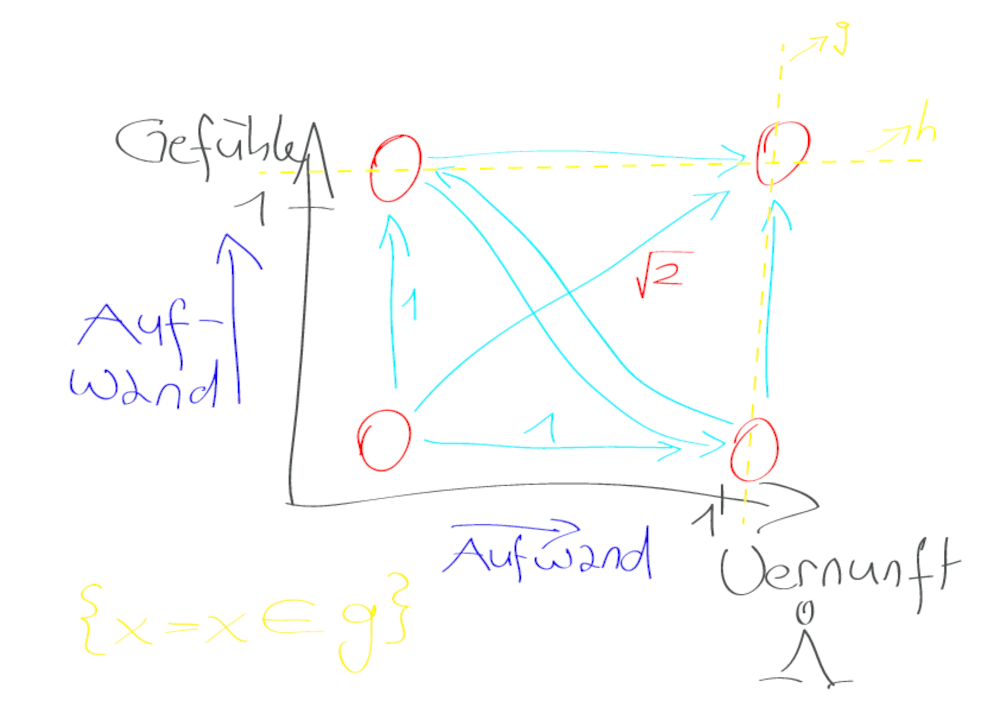 g
Gefühle
h
1
√2
Auf-
wand
1
1
1
Aufwand
Vernunft
{x=x∈g}